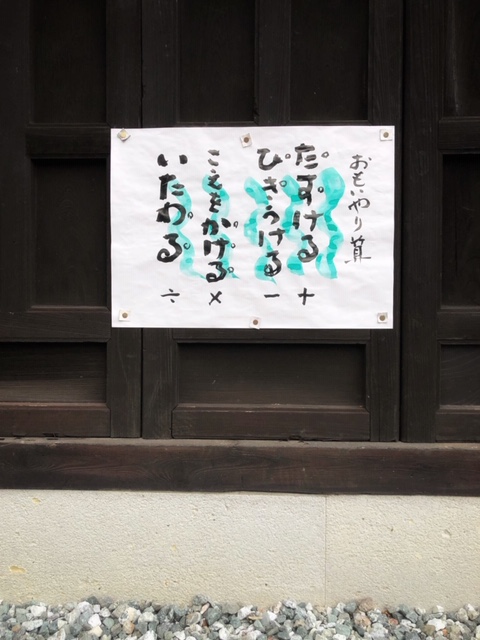 おもいやり算
たすける +
ひきうける −
こえをかける。 ×
いたわる。 ÷